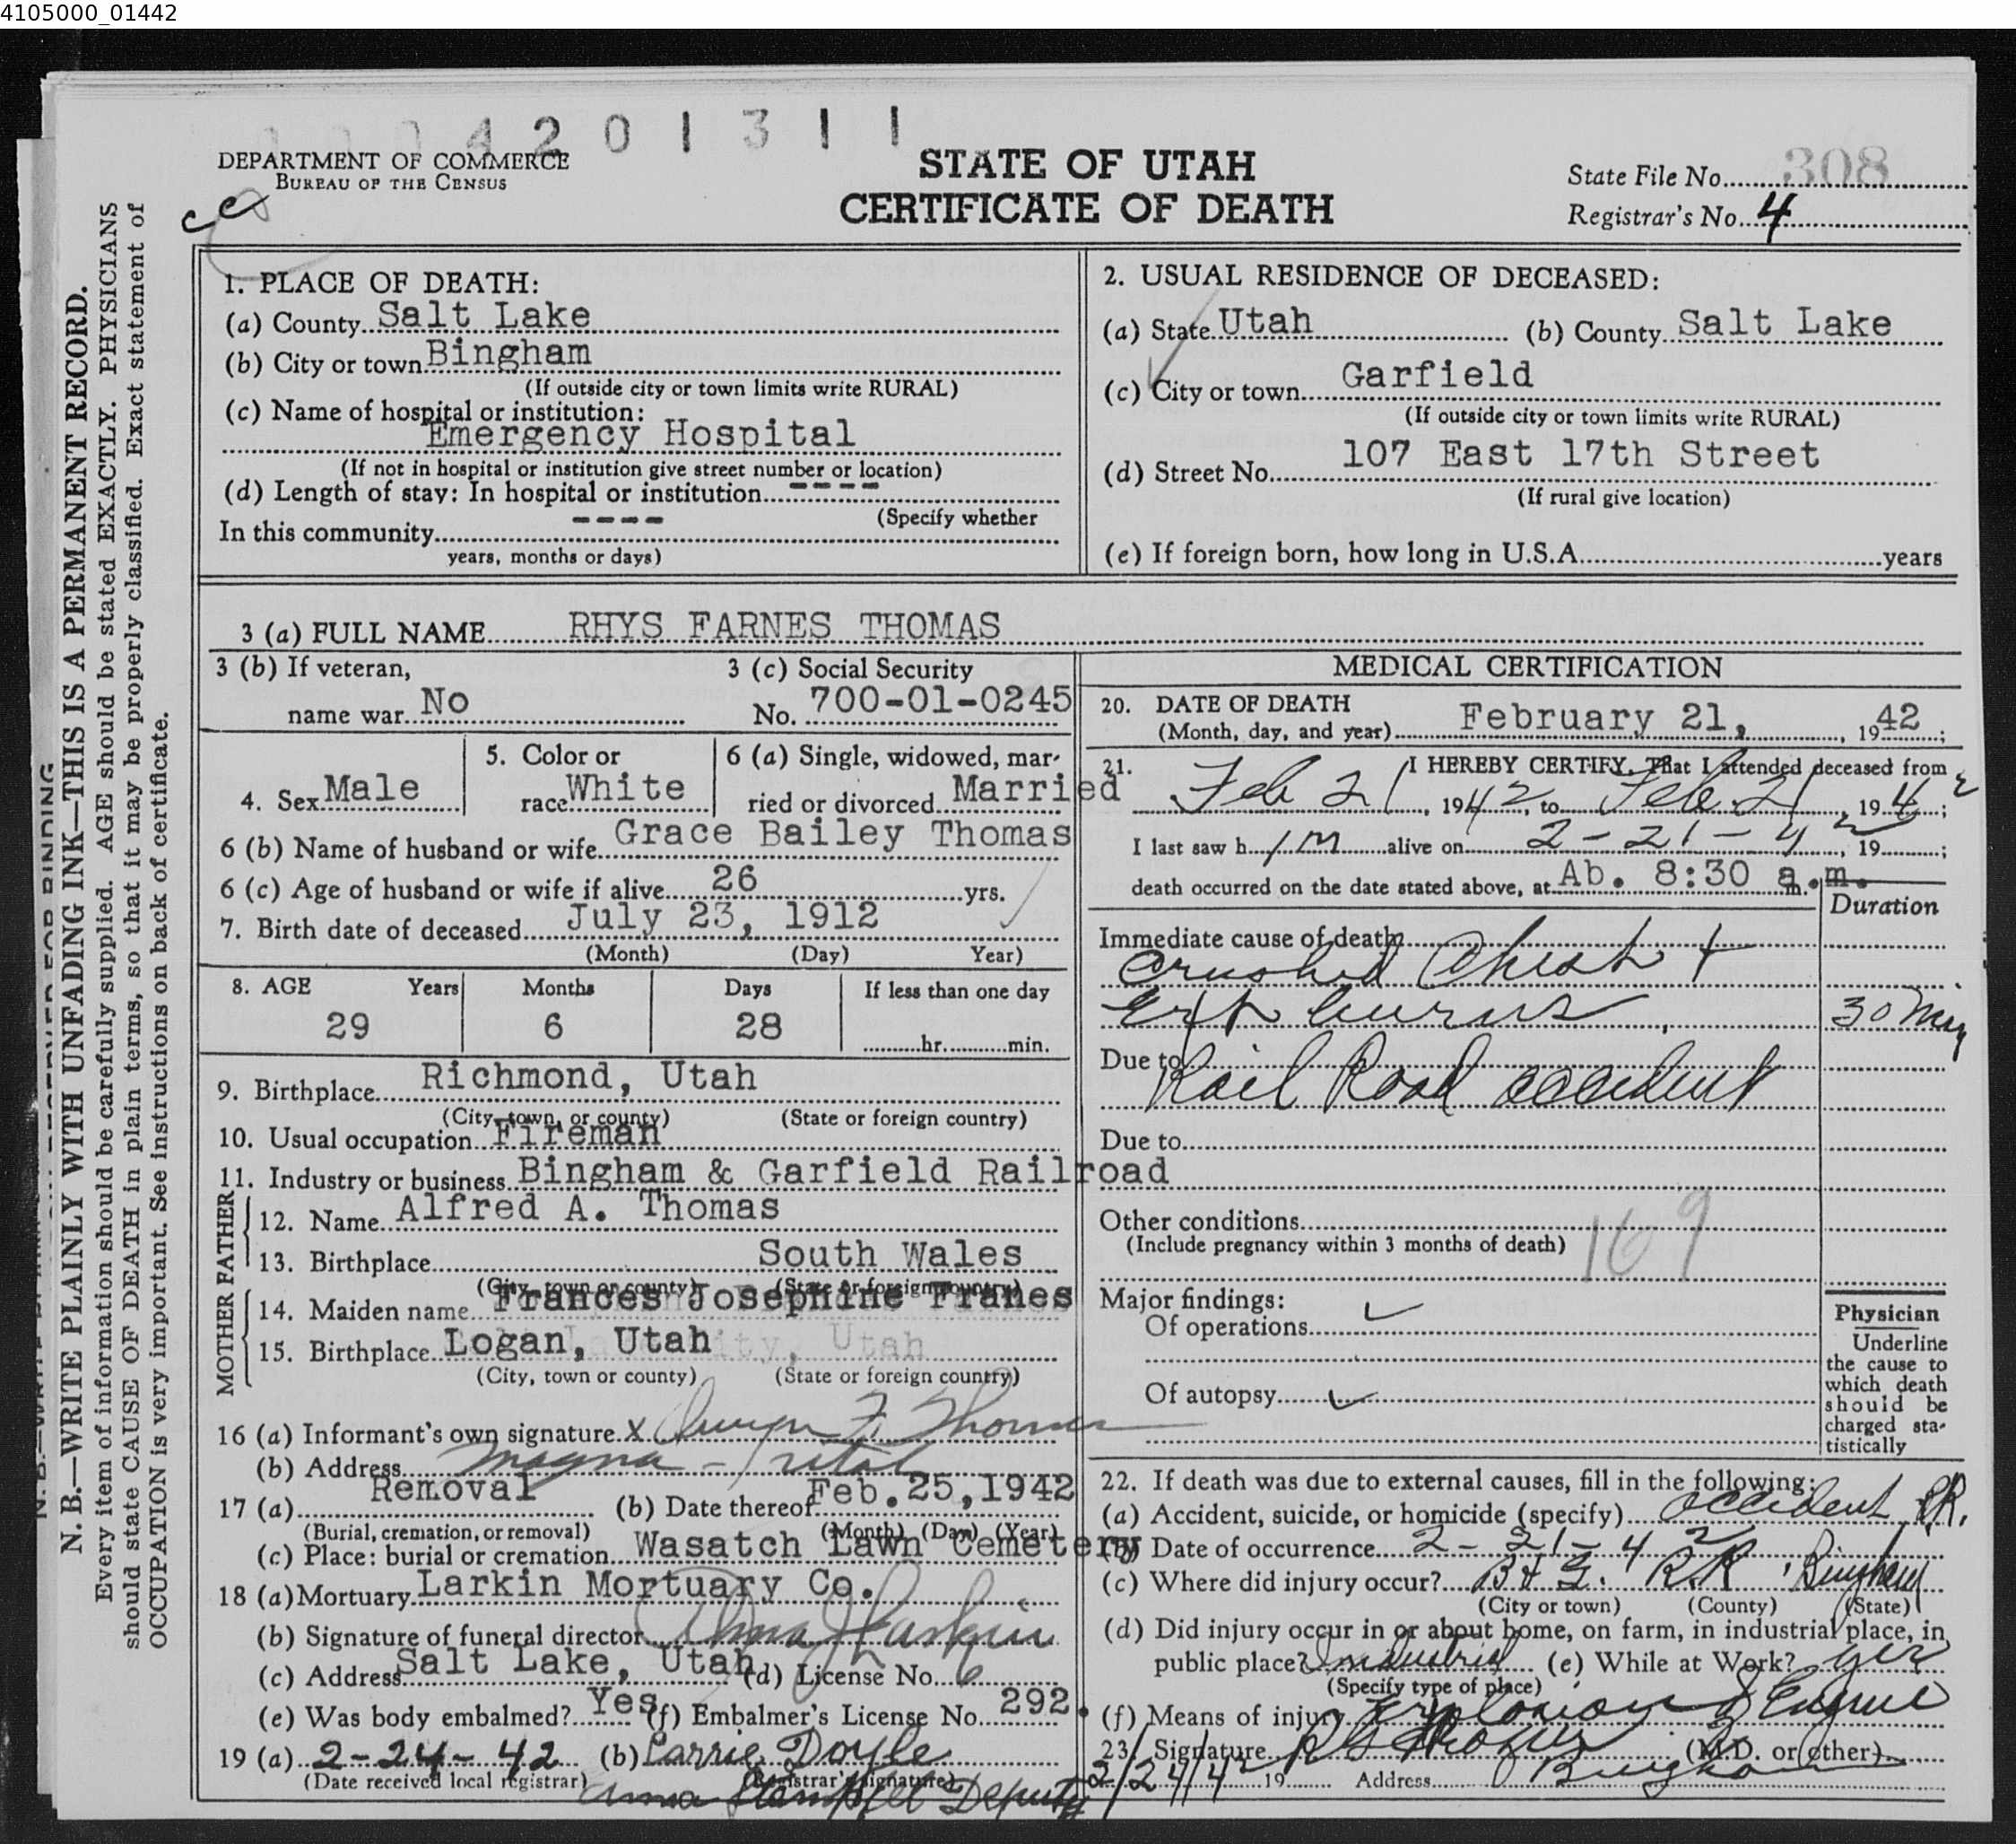 4105000_01442
4 2 0 1 3 1 1
DEPARTMENT OF COMMERCE
BUREAU OF THE CENSUS
STATE OF UTAH
CERTIFICATE OF DEATH
State File No. 308
Registrar's No. 4
N. B.—WRITE PLAINLY WITH UNFADING INK—THIS IS A PERMANENT RECORD.
Every item of information should be carefully supplied. AGE should be stated EXACTLY. PHYSICIANS
should state CAUSE OF DEATH in plain terms, so that it may be properly classified. Exact statement of
OCCUPATION is very important. See instructions on back of certificate.
1. PLACE OF DEATH:
(a) County Salt Lake
(b) City or town Bingham
(If outside city or town limits write RURAL)
(c) Name of hospital or institution:
Emergency Hospital
(If not in hospital or institution give street number or location)
(d) Length of stay: In hospital or institution ----
(Specify whether
In this community ----
years, months or days)
2. USUAL RESIDENCE OF DECEASED:
(a) State Utah (b) County Salt Lake
(c) City or town Garfield
(If outside city or town limits write RURAL)
(d) Street No. 107 East 17th Street
(If rural give location)
(e) If foreign born, how long in U.S.A. years
3 (a) FULL NAME RHYS FARNES THOMAS
3 (b) If veteran,
name war No
3 (c) Social Security
No. 700-01-0245
4. Sex Male
5. Color or
race White
6 (a) Single, widowed, mar-
ried or divorced Married
6 (b) Name of husband or wife Grace Bailey Thomas
6 (c) Age of husband or wife if alive 26 yrs.
7. Birth date of deceased July 23, 1912
(Month) (Day) Year)
8. AGE Years Months Days If less than one day
29 6 28 hr. min.
9. Birthplace Richmond, Utah
(City, town, or county) (State or foreign country)
10. Usual occupation Fireman
11. Industry or business Bingham & Garfield Railroad
FATHER
12. Name Alfred A. Thomas
13. Birthplace South Wales
(City, town or county) (State or foreign country)
MOTHER
14. Maiden name Frances Josephine Franes
15. Birthplace Logan, Utah
(City, town or county) (State or foreign country)
16 (a) Informant's own signature X F. Thomas
(b) Address Magna - Utah
17 (a) Removal (b) Date thereof Feb.25,1942
(Burial, cremation, or removal) (Month) (Day) (Year)
(c) Place: burial or cremation Wasatch Lawn Cemetery
18 (a) Mortuary Larkin Mortuary Co.
(b) Signature of funeral director Alma J Larkin
(c) Address Salt Lake, Utah (d) License No. 6
(e) Was body embalmed? Yes (f) Embalmer's License No. 292.
19 (a) 2-24-42 (b) Carrie Doyle
(Date received local registrar) (Registrar's signature)
Anna Deputy
MEDICAL CERTIFICATION
20. DATE OF DEATH
(Month, day, and year) February 21, 1942;
21. I HEREBY CERTIFY, That I attended deceased from
Feb 21, 1942, to Feb. 21, 1942;
I last saw him alive on 2-21-42, 19 ;
death occurred on the date stated above, at Ab. 8:30 a.m.
Duration
Immediate cause of death
Crushed Chest +
Ext burns 30 Min
Due to
Rail Road accident
Due to
Other conditions 169
(Include pregnancy within 3 months of death)
Major findings:
Of operations
Of autopsy
Physician
Underline
the cause to
which death
should be
charged sta-
tistically
22. If death was due to external causes, fill in the following:
(a) Accident, suicide, or homicide (specify) accident RR.
(b) Date of occurrence 2-21-42
(c) Where did injury occur? B & G. RR, Bingham
(City or town) (County) (State)
(d) Did injury occur in or about home, on farm, in industrial place, in
public place? Industrial (e) While at Work? yes
(Specify type of place)
(f) Means of injury Explosion of Engine
23. Signature (M.D. or other)
2/24/42 19 Address Bingham